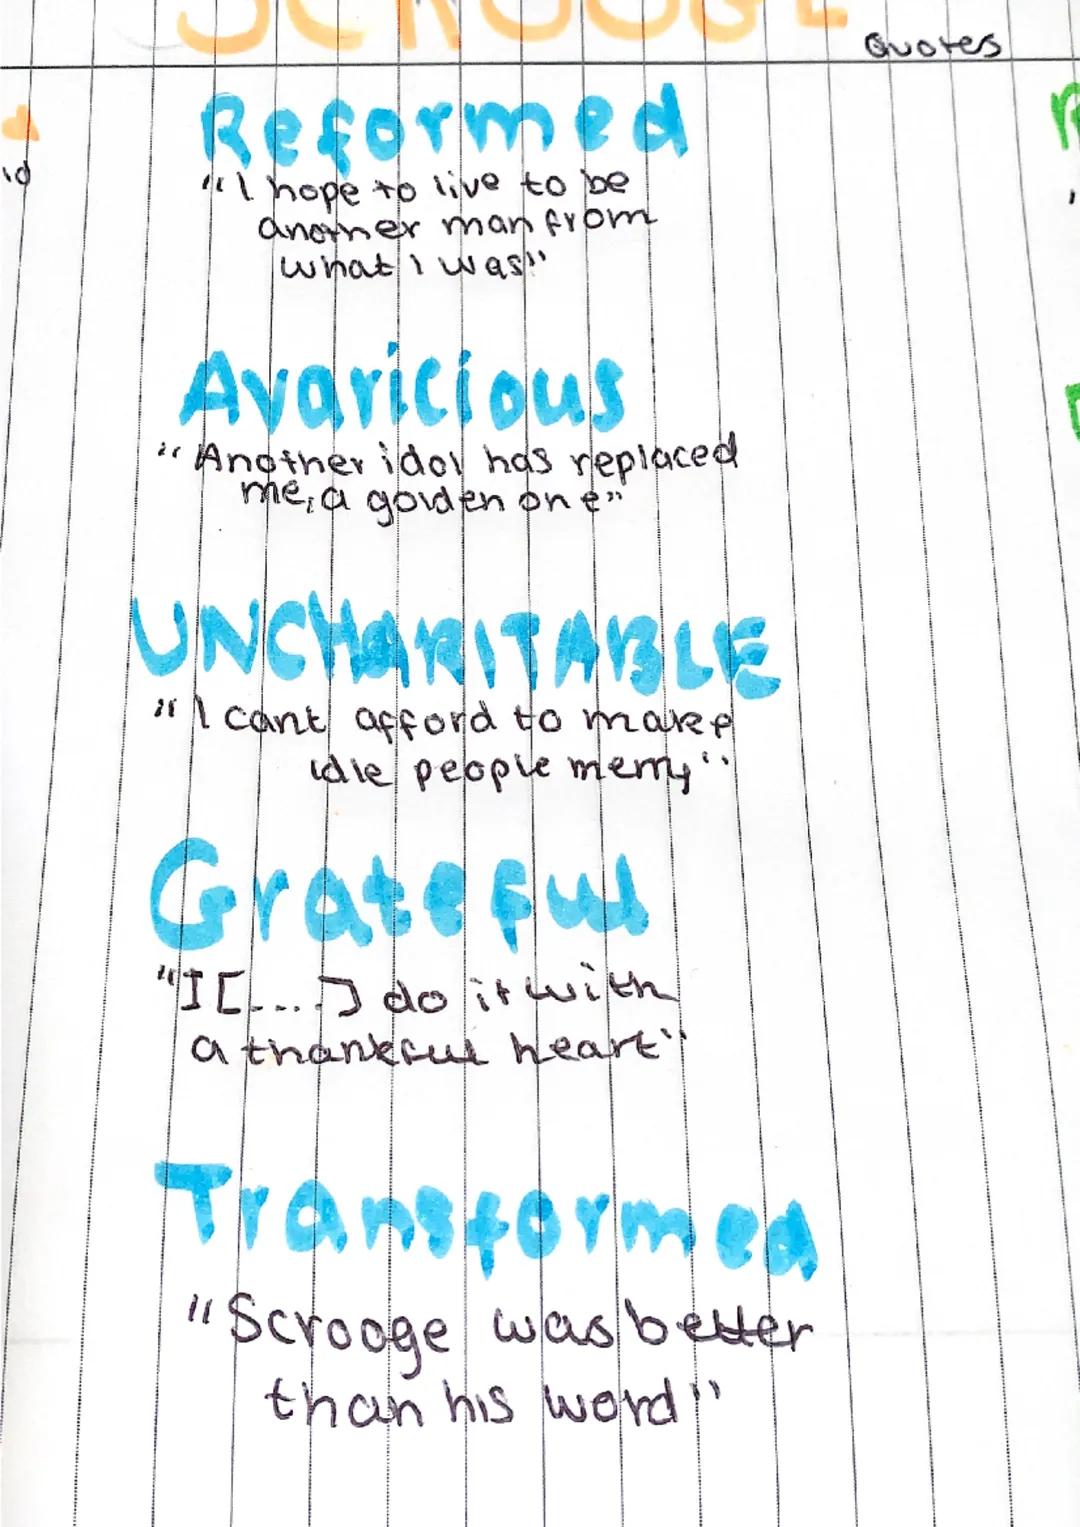 SCROOGE
Quotes
Reformed
"I hope to live to be
another man from
what I was"
Avaricious
"Another idol has replaced
me, a golden one"
UNCHARITABLE
"I cant afford to make
idle people merry"
Grateful
"I [....] do it with
a thankful heart"
Transformed
"Scrooge was better
than his word"